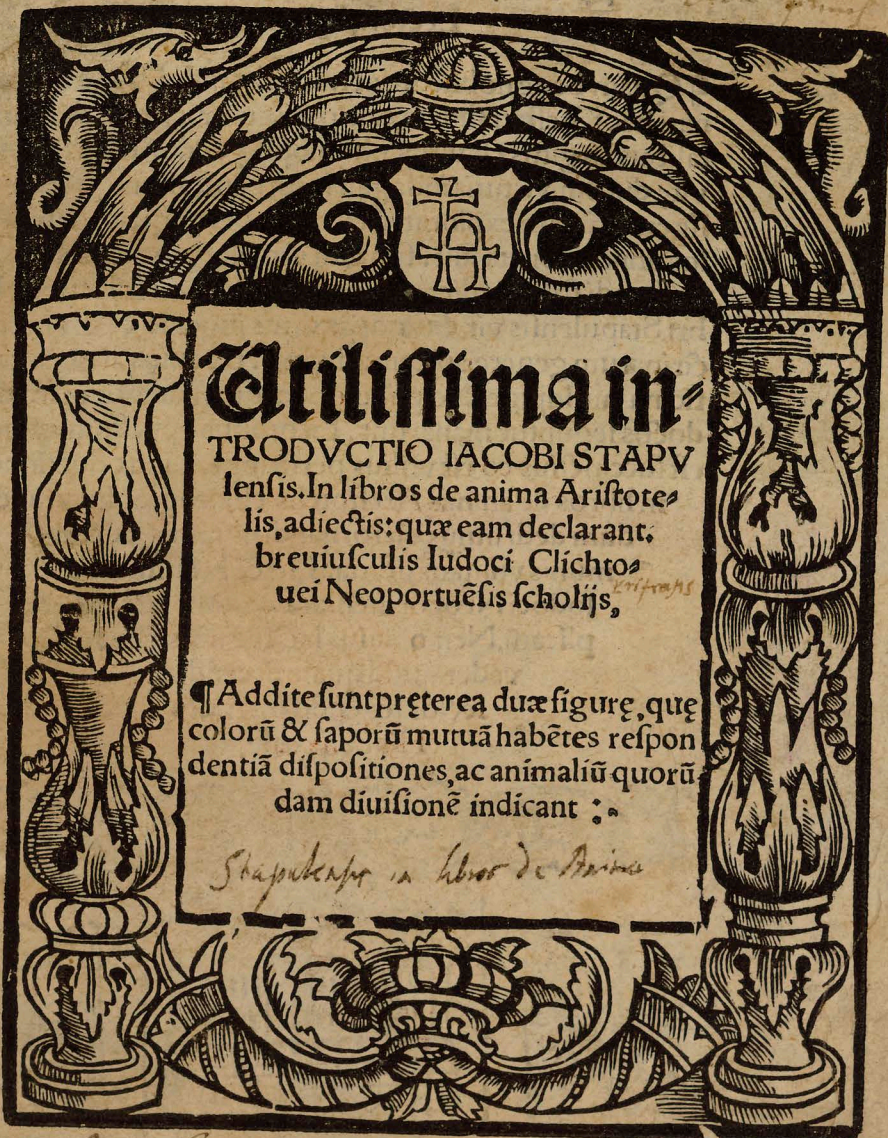 Utilissima in⸗
TRODVCTIO IACOBI STAPV
lensis. In libros de anima Aristote⸗
lis, adiectis: quæ eam declarant.
breuiusculis Iudoci Clichto⸗
uei Neoportuēsis scholijs,
¶ Addite sunt pręterea duæ figurę, quę
colorū & saporū mutuā habētes respon
dentiā dispositiones, ac animaliū quorū⸗
dam diuisionē indicant :.
Stapulensis in libros de Anima